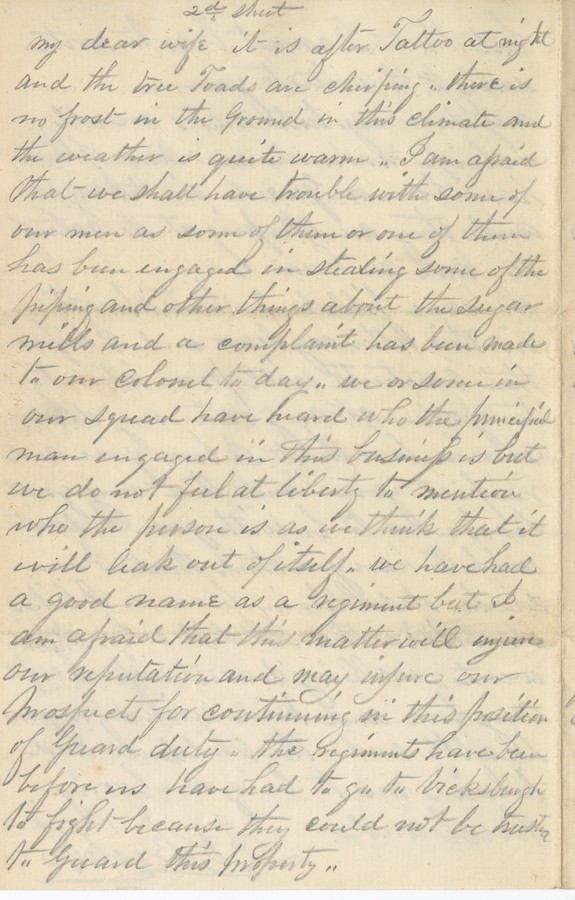 2d sheet
my dear wife it is after Tattoo at night
and the tree Toads are chirping.. there is
no frost in the Ground in this climate and
the weather is quite warm .. I am afraid
that we shall have trouble with some of
our men as some of them or one of them
has been engaged in stealing some of the
piping and other things about the sugar
mills and a complaint has been made
to our Colonel to day .. we or some in
our squad have heard who the principal
man engaged in this business is but
we do not feel at liberty to mention
who the person is as we think that it
will leak out of itself .. we have had
a good name as a regiment but I
am afraid that this matter will injure
our reputation and may injure our
prospects for continuing in this position
of Guard duty .. the regiments have been
before us have had to go to Vicksburgh
to fight because they could not be trusted
to Guard this property ..